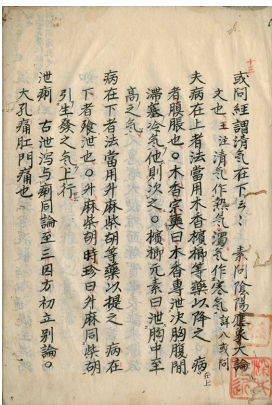 或问經謂清气在下云〻　素問陰陽應象大論
文也　王注清气作熱气濁气作寒气　詳入或问
夫病在上者法當用木香檳榔等藥以降之　病在上
者䐜脹也〇木香宗奭曰木香專泄次胸腹間
滯塞冷气他則次之〇檳榔元素曰泄胸中至
高之气
病在下者法當用升麻柴胡等藥以提之　病在
下者飱泄也〇升麻柴胡時珍曰升麻同柴胡
引生發之气上行
泄痢　古泄瀉与痢同論至三因方初立別論〇
大孔痛肛門痛也